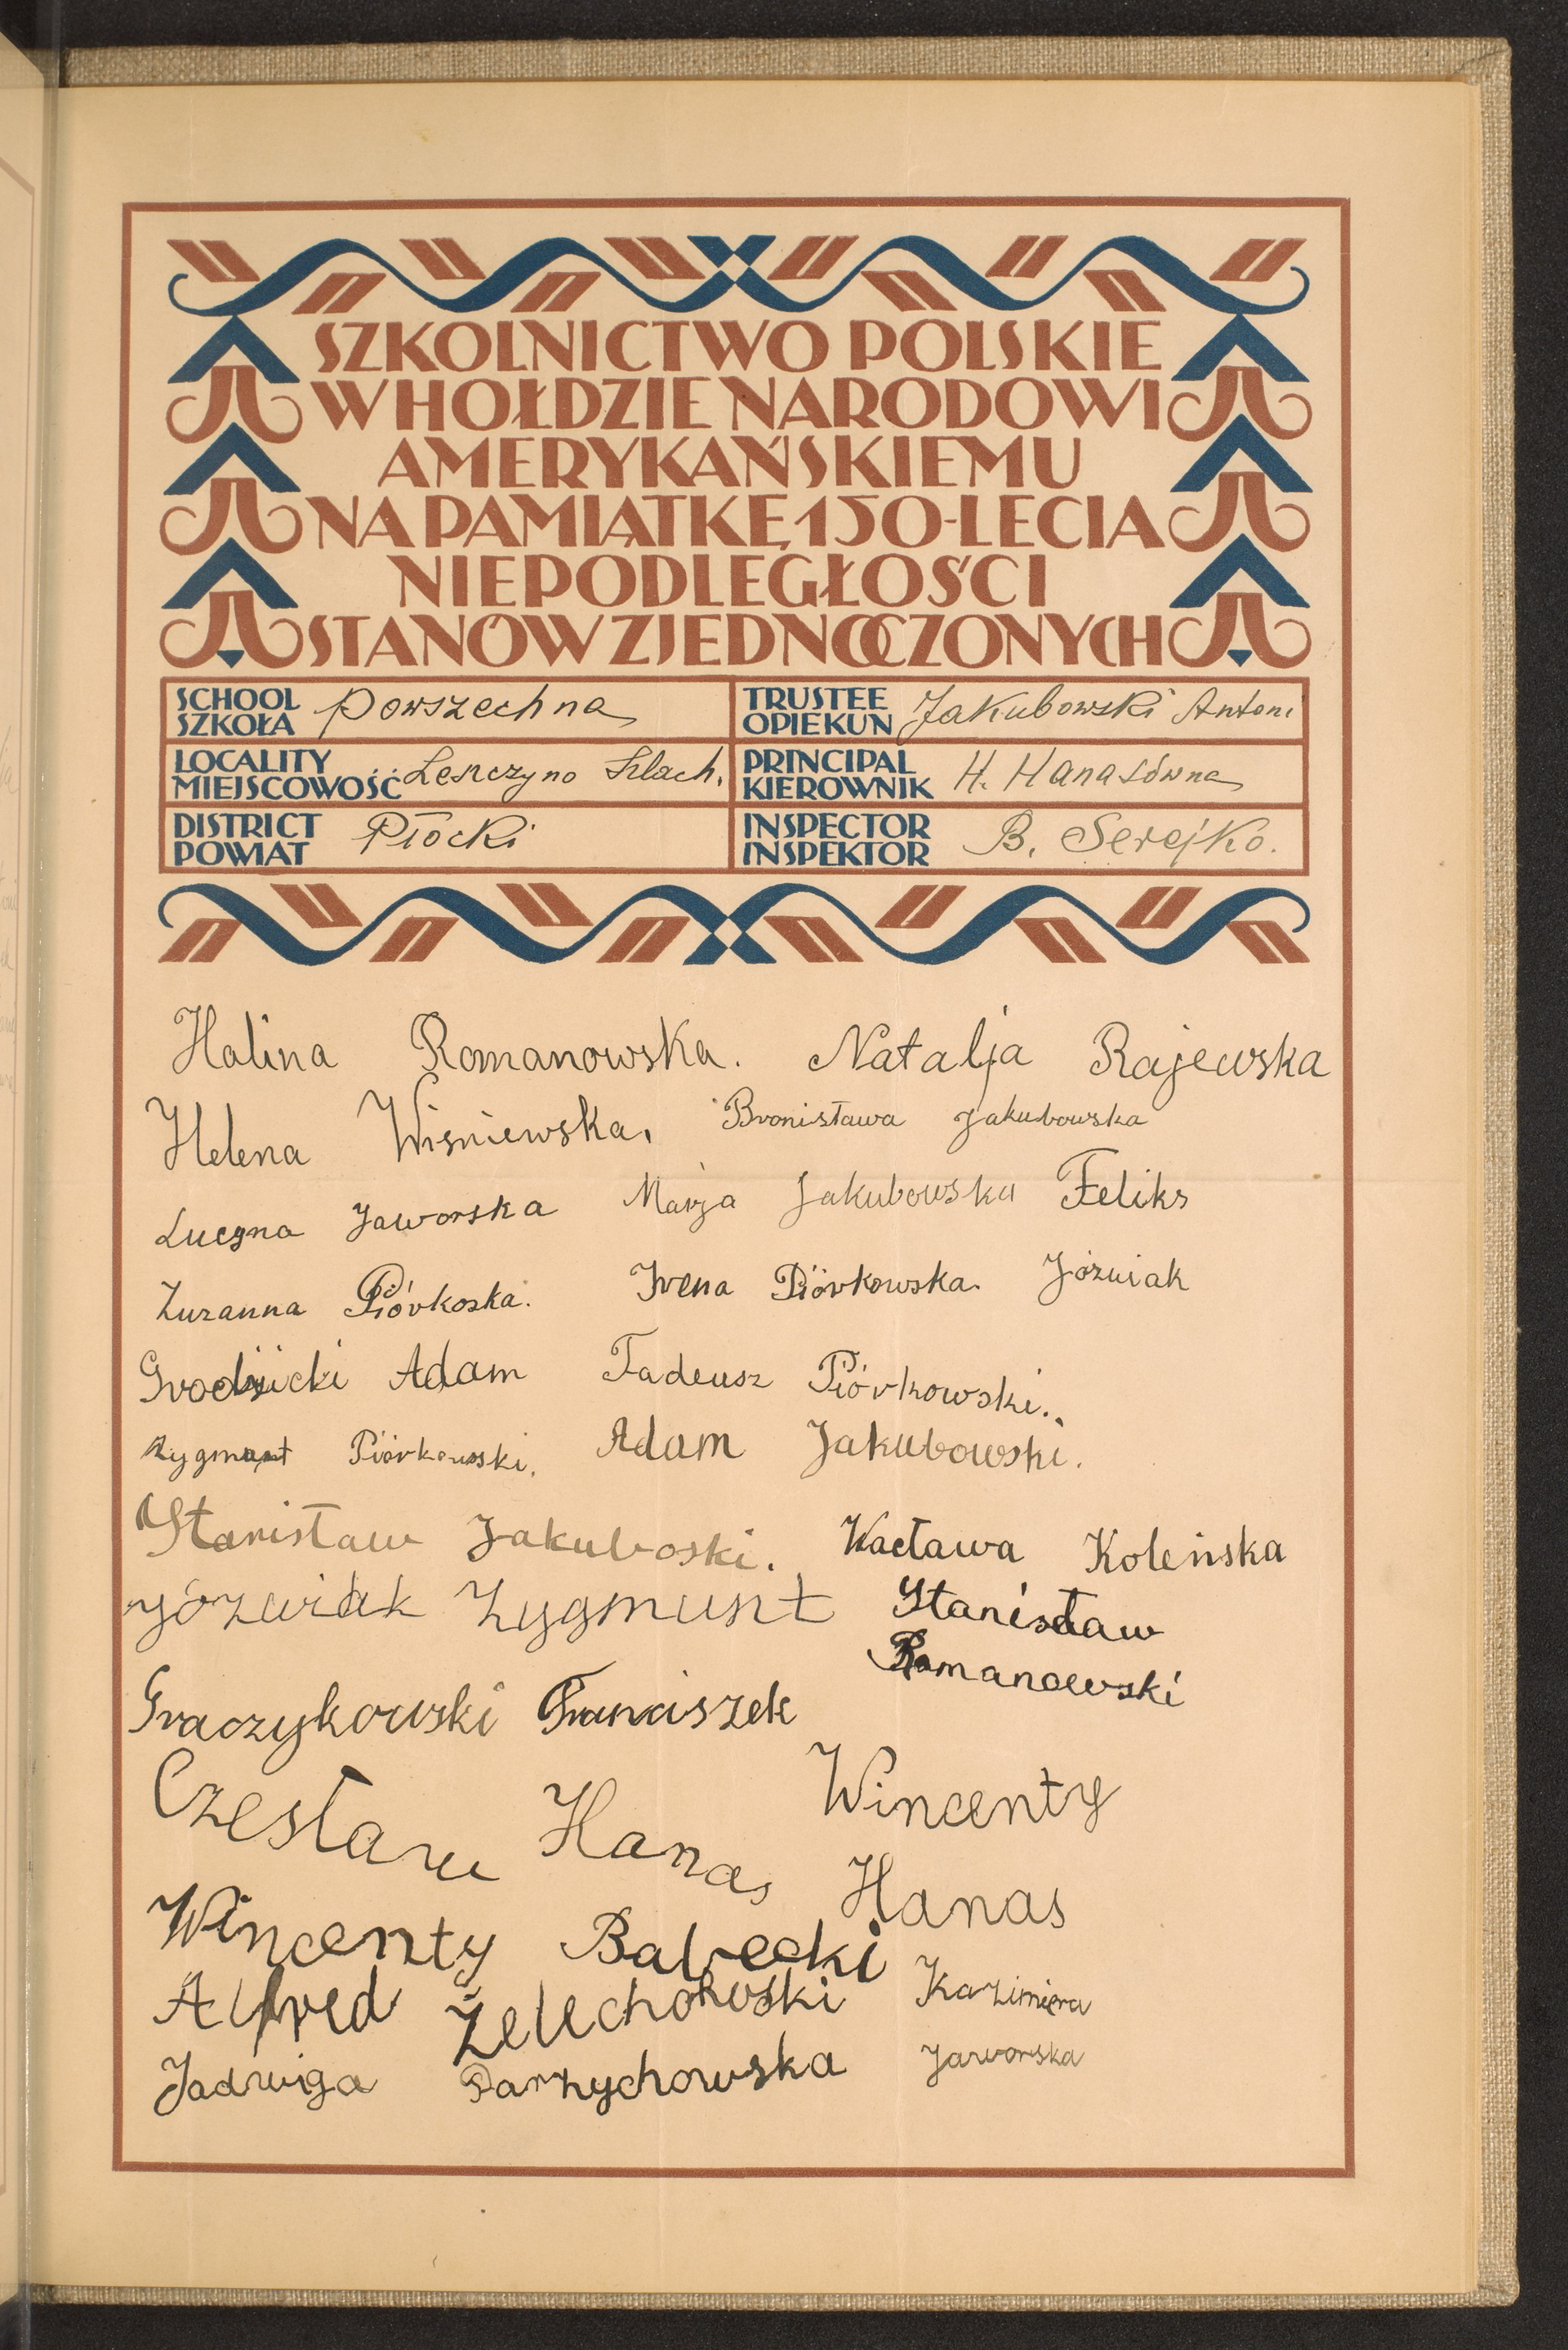 SZKOLNICTWO POLSKIE
W HOŁDZIE NARODOWI
AMERYKAŃSKIEMU
NA PAMIĄTKĘ 150-LECIA
NIEPODLEGŁOŚCI
STANÓW ZJEDNOCZONYCH
SCHOOL
SZKOŁA
Powszechna
TRUSTEE
OPIEKUN
Jakubowski Antoni
LOCALITY
MIEJSCOWOŚĆ
Leszczyno Szlach.
PRINCIPAL
KIEROWNIK
H. Hanasówna
DISTRICT
POWIAT
Płocki
INSPECTOR
INSPEKTOR
B. Serejko.
Halina Romanowska. Natalja Rajewska
Helena Wiśniewska. Bronisława Jakubowska
Lucyna Jaworska Marja Jakubowska Feliks
Zuzanna Piórkoska. Irena Piórkowska. Józwiak
Grodzicki Adam Tadeusz Piórkowski.
Zygmunt Piórkowski. Adam Jakubowski.
Stanisław Jakuboski. Wacława Koleńska
Józwiak Zygmunt Stanisław
Romanowski
Graczykowski Franciszek
Czesław Hanas Wincenty
Hanas
Wincenty Balcecki
Alfred Żelechowski Kazimiera
Jadwiga Parzychowska Jaworska